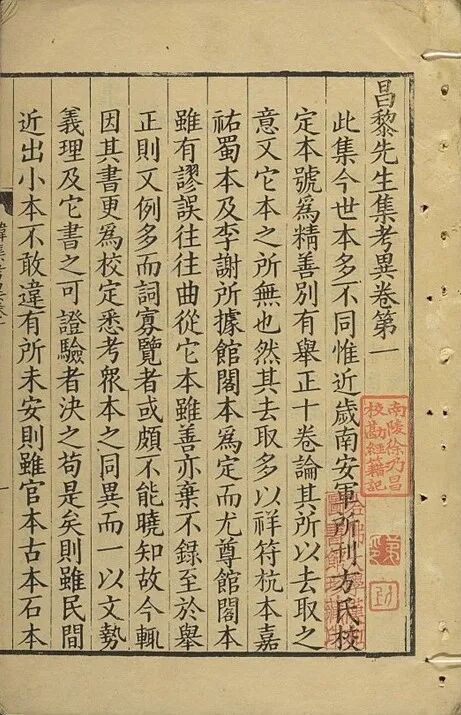 昌黎先生集考異卷第一
此集今世本多不同惟近歲南安軍所刊方氏校
定本號為精善別有舉正十卷論其所以去取之
意又它本之所無也然其去取多以祥符杭本嘉
祐蜀本及李謝所據館閣本為定而尤尊館閣本
雖有謬誤往往曲從它本雖善亦棄不錄至於舉
正則又例多而詞寡覽者或頗不能曉知故今輒
因其書更為校定悉考眾本之同異而一以文勢
義理及它書之可證驗者決之苟是矣則雖民間
近出小本不敢違有所未安則雖官本古本石本
南陵徐乃昌
校勘經籍記